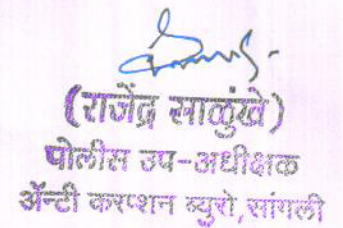 (राजेंद्र साळुंखे)
पोलीस उप-अधीक्षक
ॲन्टी करप्शन ब्युरो,सांगली